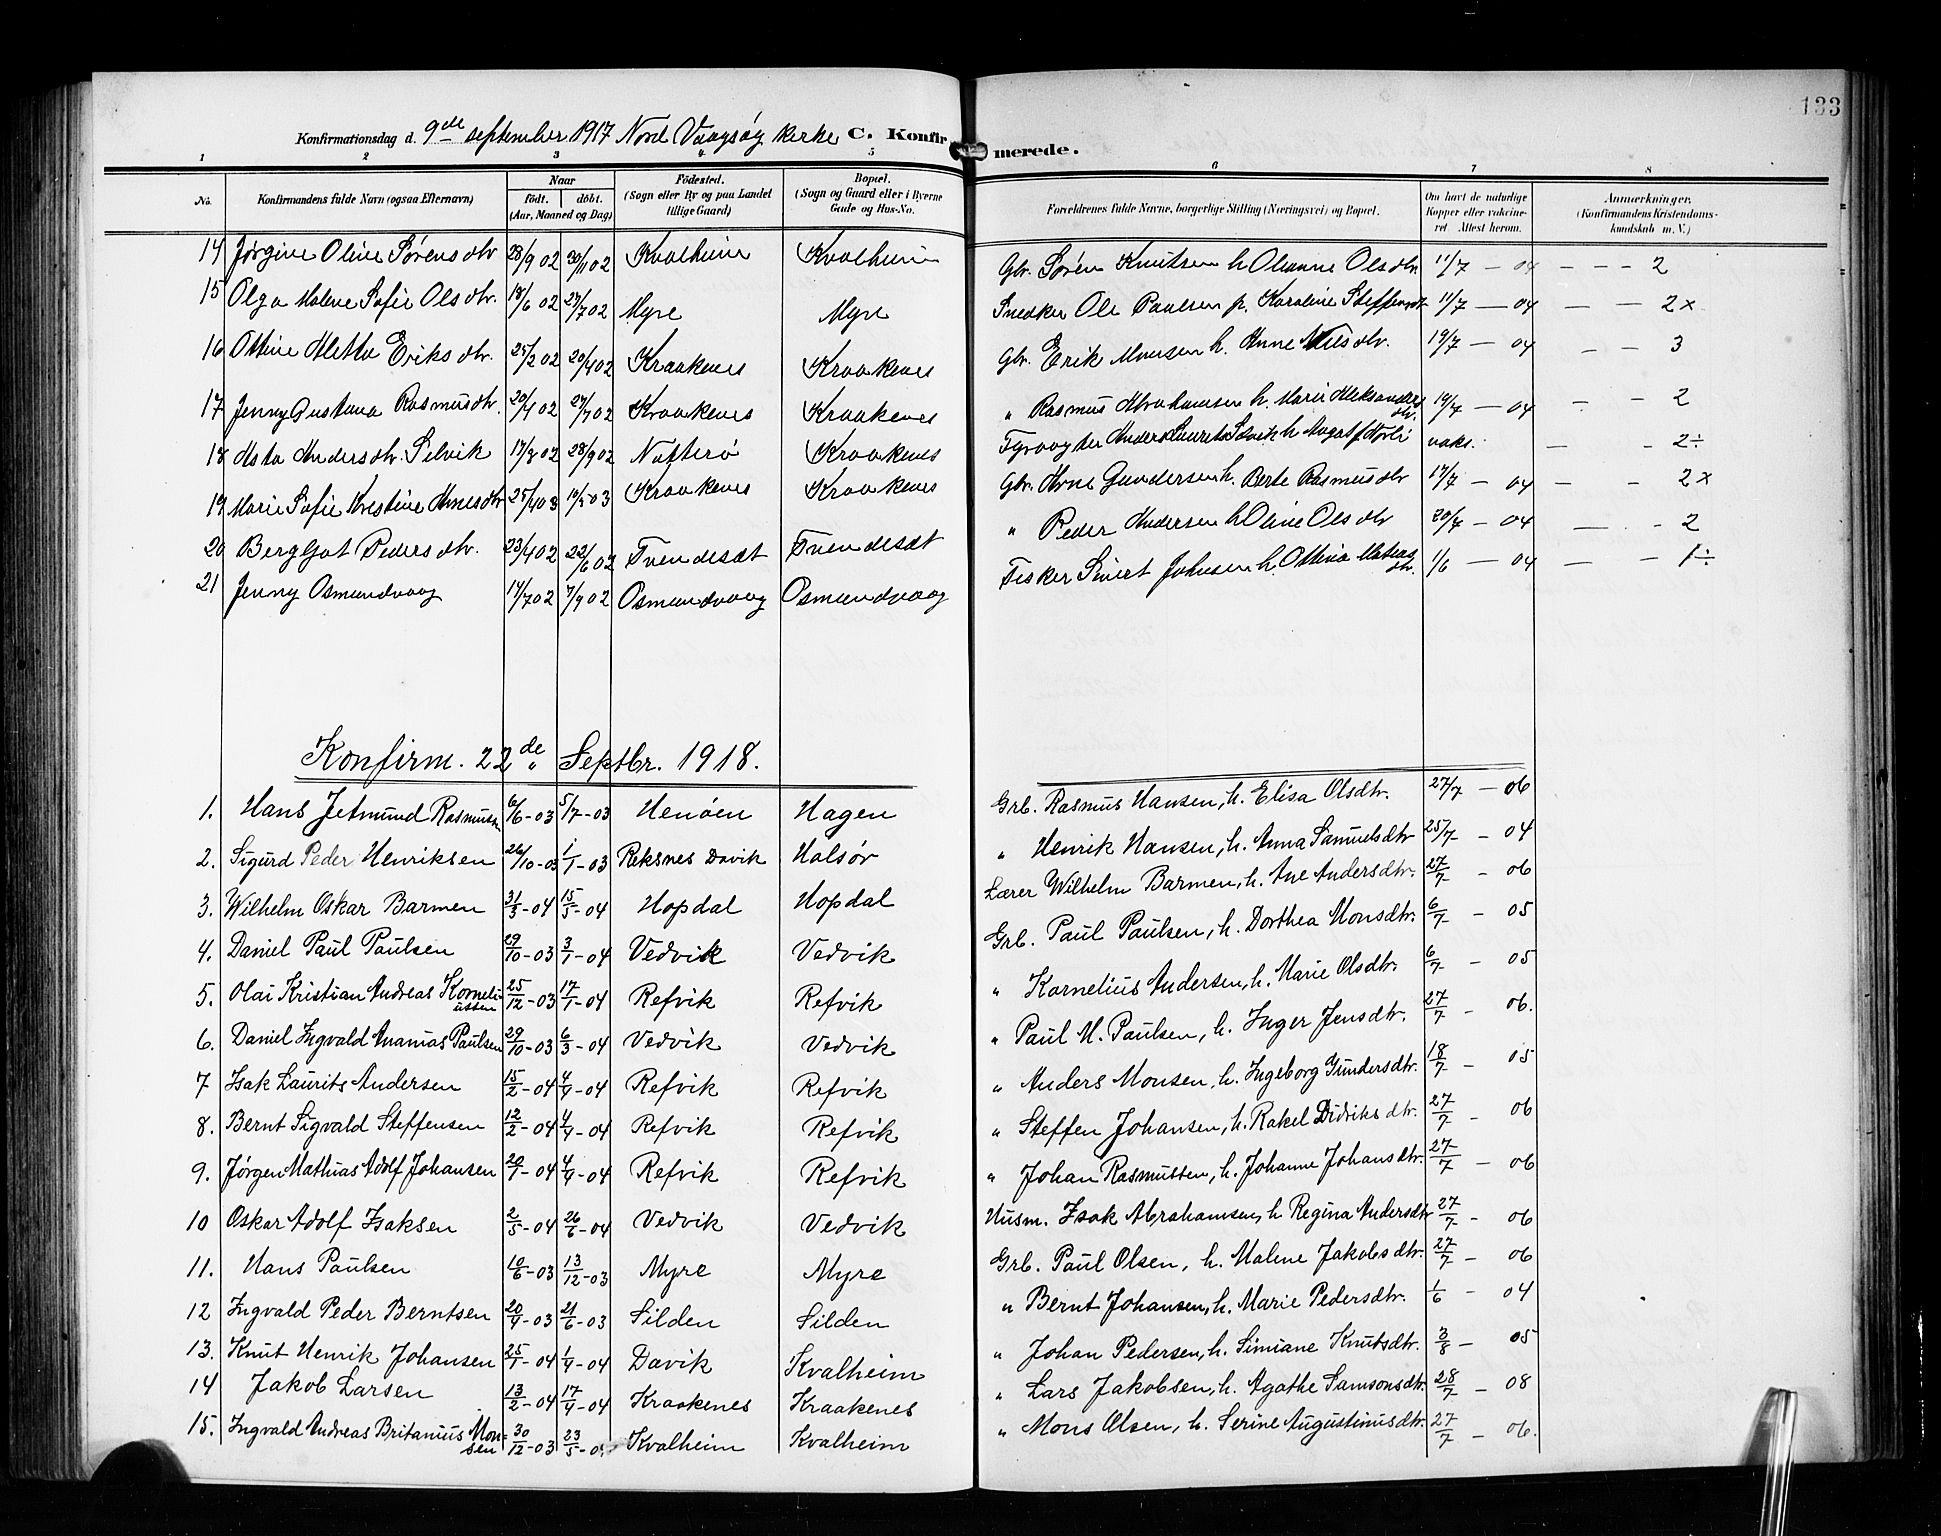 133
Konfirmationsdag d. 9de september 1917 Nord Vaagsøy kerke C. Konfirmerede.
1 2 3 4 5 6 7 8
No. Konfirmandens fulde Navn (ogsaa Efternavn) Naar født. døbt. (Aar, Maaned og Dag) Fødested. (Sogn eller By og paa Landet tillige Gaard) Bopæl. (Sogn og Gaard eller i Byerne Gade og Hus-No. Forældrenes fulde Navne, borgerlige Stilling (Næringsvei) og Bopæl. Om havt de naturlige Kopper eller vakcineret Attest herom. Anmærkninger. (Konfirmandens Kristendomskundskab m. V.)
14 Jørgine Oline Sørensdtr 28/9 02 30/11 02 Kvalheim Kvalheim Gbr. Søren Knutsen h Oleanne Olsdtr 11/7 — 04 — — — 2
15 Olga Malene Sofie Olsdtr. 18/6 02 27/7 02 Myre Myre Snedker Ole Paulsen h. Karoline Steffensdtr 11/7 — 04 — — 2 x
16 Ottine Mette Eriksdtr. 25/2 02 20/4 02 Kraakenes Kraakenes Gbr. Erik Monsen h. Anne Nilsdtr. 19/7 — 04 — — 3
17 Jenny Gustava Rasmusdtr. 20/4 02 27/7 02 Kraakenes Kraakenes " Rasmus Abrahamsen h. Marie Aleksandersdtr. 19/7 — 04 - - 2
18 Asta Andersdtr. Selvik 17/8 02 28/9 02 Nøtterø Kraakenes Fyrvogter Anders Laurits Selvik h vaks. — - 2 ÷
19 Marie Sofie Kristine Arnesdtr 25/4 03 10/5 03 Kraakenes Kraakenes Gbr. Arne Gundersen h. Berte Rasmusdtr 17/7 — 04 — - 2 x
20 Bergljot Pedersdtr. 23/4 02 22/6 02 Tvendesæt Tvendesæt " Peder Andersen h Oline Olsdtr 20/7 — 04 — - 2
21 Jenny Osmundvaag 14/7 02 7/9 02 Osmundvaag Osmundvaag Fisker Sivert Johnsen h. Ottina Mateasdtr. 1/6 — 04 — - 1 ÷
Konfirm. 22de Septbr. 1918.
1. Hans Jetmund Rasmussen 6/6 - 03 5/7 - 03 Henøen Hagen Grb. Rasmus Hansen, h. Elisa Olsdtr. 27/7 — 06
2. Sigurd Peder Henriksen 26/10 - 03 1/1 - 03 Reksnes Davik Halsør " Henrik Hansen, h. Anna Samuelsdtr 25/7 - 04
3. Wilhelm Oskar Barmen 31/3 - 04 15/5 - 04 Hopdal Hopdal Lærer Wilhelm Barmen, h. Ane Andersdtr. 27/7 - 06
4. Daniel Paul Paulsen 29/10 - 03 3/1 - 04 Vedvik Vedvik Grb. Paul Paulsen, h. Dorthea Monsdtr. 6/7 - 05
5. Olai Kristian Andreas Korneliussen 25/12 - 03 17/1 - 04 Refvik Refvik " Kornelius Andersen, h. Marie Olsdtr. 6/7 - 05
6. Daniel Ingvald Ananias Paulsen 29/10 - 03 6/3 - 04 Vedvik Vedvik " Paul M. Paulsen, h. Inger Jensdtr. 27/7 - 06.
7 Isak Laurits Andersen 15/2 - 04 4/4 - 04 Refvik Refvik " Anders Monsen, h. Ingeborg Gundersdtr. 18/7 - 05
8. Bernt Sigvald Steffensen 12/2 - 04 4/4 - 04 Refvik Refvik " Steffen Johansen, h. Rakel Didriksdtr. 27/7 - 06
9. Jørgen Mathias Adolf Johansen 20/1 - 04 4/4 - 04 Refvik Refvik " Johan Rasmussen, h. Johanne Johansdtr. 27/7 - 06
10 Oskar Adolf Isaksen 2/5 - 04 26/6 - 04 Vedvik Vedvik Husm. Isak Abrahamsen, h Regina Andersdtr 27/7 - 06
11. Hans Paulsen 10/6 - 03 13/12 - 03 Myre Myre Grb. Paul Olsen, h. Malene Jakobsdtr. 27/7 - 06
12 Ingvald Peder Berntsen 20/4 - 03 21/6 - 03 Silden Silden " Bernt Johansen, h. Marie Pedersdtr. 1/6 - 04
13. Knut Henrik Johansen 25/1 - 04 1/4 - 04 Davik Kvalheim " Johan Pedersen, h. Simiane Knutsdtr. 3/8 - 05
14 Jakob Larsen 13/2 - 04 17/4 - 04 Kraakenes Kraakenes " Lars Jakobsen, h. Agathe Samsonsdtr. 28/7 - 08
15. Ingvald Andreas Britanius Monsen 30/12 - 03 23/5 - 0 Kvalheim Kvalheim " Mons Olsen, h. Serine Augustinusdtr. 27/7 - 06.